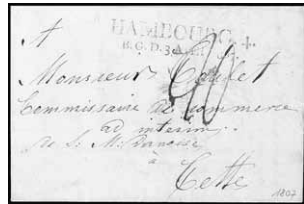 HAMBOURG
B.G.D. 3 Avr.
A
Monsieur
Commissaire de commerce
ad interim
de S. M. Danoise
à
Cette
1807